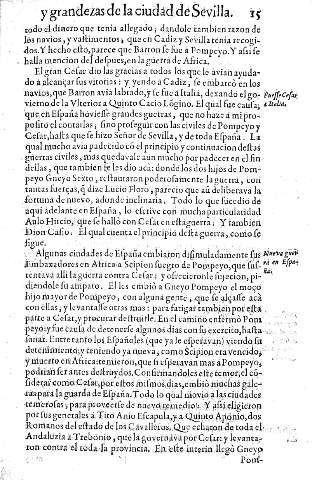 y grandezas de la ciudad de Sevilla. 15
todo el dinero que tenia allegado; dandole tambien razon de
los navios, y vastimentos, que en Cadiz y Sevilla tenia recogi-
dos. Y hecho esto, parece que Barron se fue a Pompeyo. Y assi se
halla mencion del despues, en la guerra de Africa.
El gran Cesar dio las gracias a todos los que le avian ayuda-
do a alcançar sus vitorias: y yendo a Cadiz, se embarcò en los
navios, que Barron avia labrado, y se fue a Italia, dexando el go-
vierno de la Vlterior a Quinto Cacio Lõgino. El qual fue causa,
que en España huviesse grandes guerras, que no haze a mi pro-
posito el contarlas; sino proseguir con las civiles de Pompeyo y
Cesar, hasta que se hizo Señor de Sevilla, y de toda España. La
qual mucho avia padecido cõ el principio y continuacion destas
guerras civiles, mas quedavale aun mucho por padecer en el fin
dellas, que tambien se les dio acà: donde los dos hijos de Pom-
peyo Gneyo Sexto, restauraron poderosamente la guerra, con
tantas fuerças, q̃ dize Lucio Floro, parecio que aũ deliberava la
fortuna de nuevo, adonde inclinaria. Todo lo que sucedio de
aqui adelante en España, lo escrive con mucha particularidad
Aulo Hircio, que se hallò con Cesar en esta guerra: Y tambien
Dion Casio. El qual cuenta el principio desta guerra, como se
sigue.
Algunas ciudades de España embiaron dissimuladamente sus
Embaxadores en Africa a Scipion suegro de Pompeyo, que sus
tentava alli la guerra contra Cesar: y ofrecieronle sujecion, pi-
diendole su amparo. El les embiò a Gneyo Pompeyo el moço
hijo mayor de Pompeyo, con alguna gente, que se alçasse acà
con ellas, y levantasse otras mas: para fatigar tambien por esta
parte a Cesar, y procurar destruille. En el camino enfermò Pom
peyo; y fue causa de detenerse algunos dias con su exercito, hasta
sanar. Entre tanto los Españoles (que ya le esperavan) viendo su
detenimiento, y teniendo ya nueva, como Scipion era vencido,
y muerto en Africa: temieron, que si esperavan mas a Pompeyo,
podrian ser antes destruydos. Confirmandoles este temor, el cõ-
siderar como Cesar, por estos mismos dias, embiò muchas gale-
ras para la guarda de España. Todo lo qual movio a las ciudades
temerosas, para proveerse de nuevo remedio. Y assi eligieron
por sus generales a Tito Anio Escapula, y a Quinto Aponio, dos
Romanos del estado de los Cavalleros. Que echaron de toda el
Andaluzia a Trebonio, que la governava por Cesar: y levanta-
ron contra el toda la provincia. En este interin llegò Gneyo
Pom-
Passase Cesar
a Italia.
Nueva guer
ra en Espa-
ña.